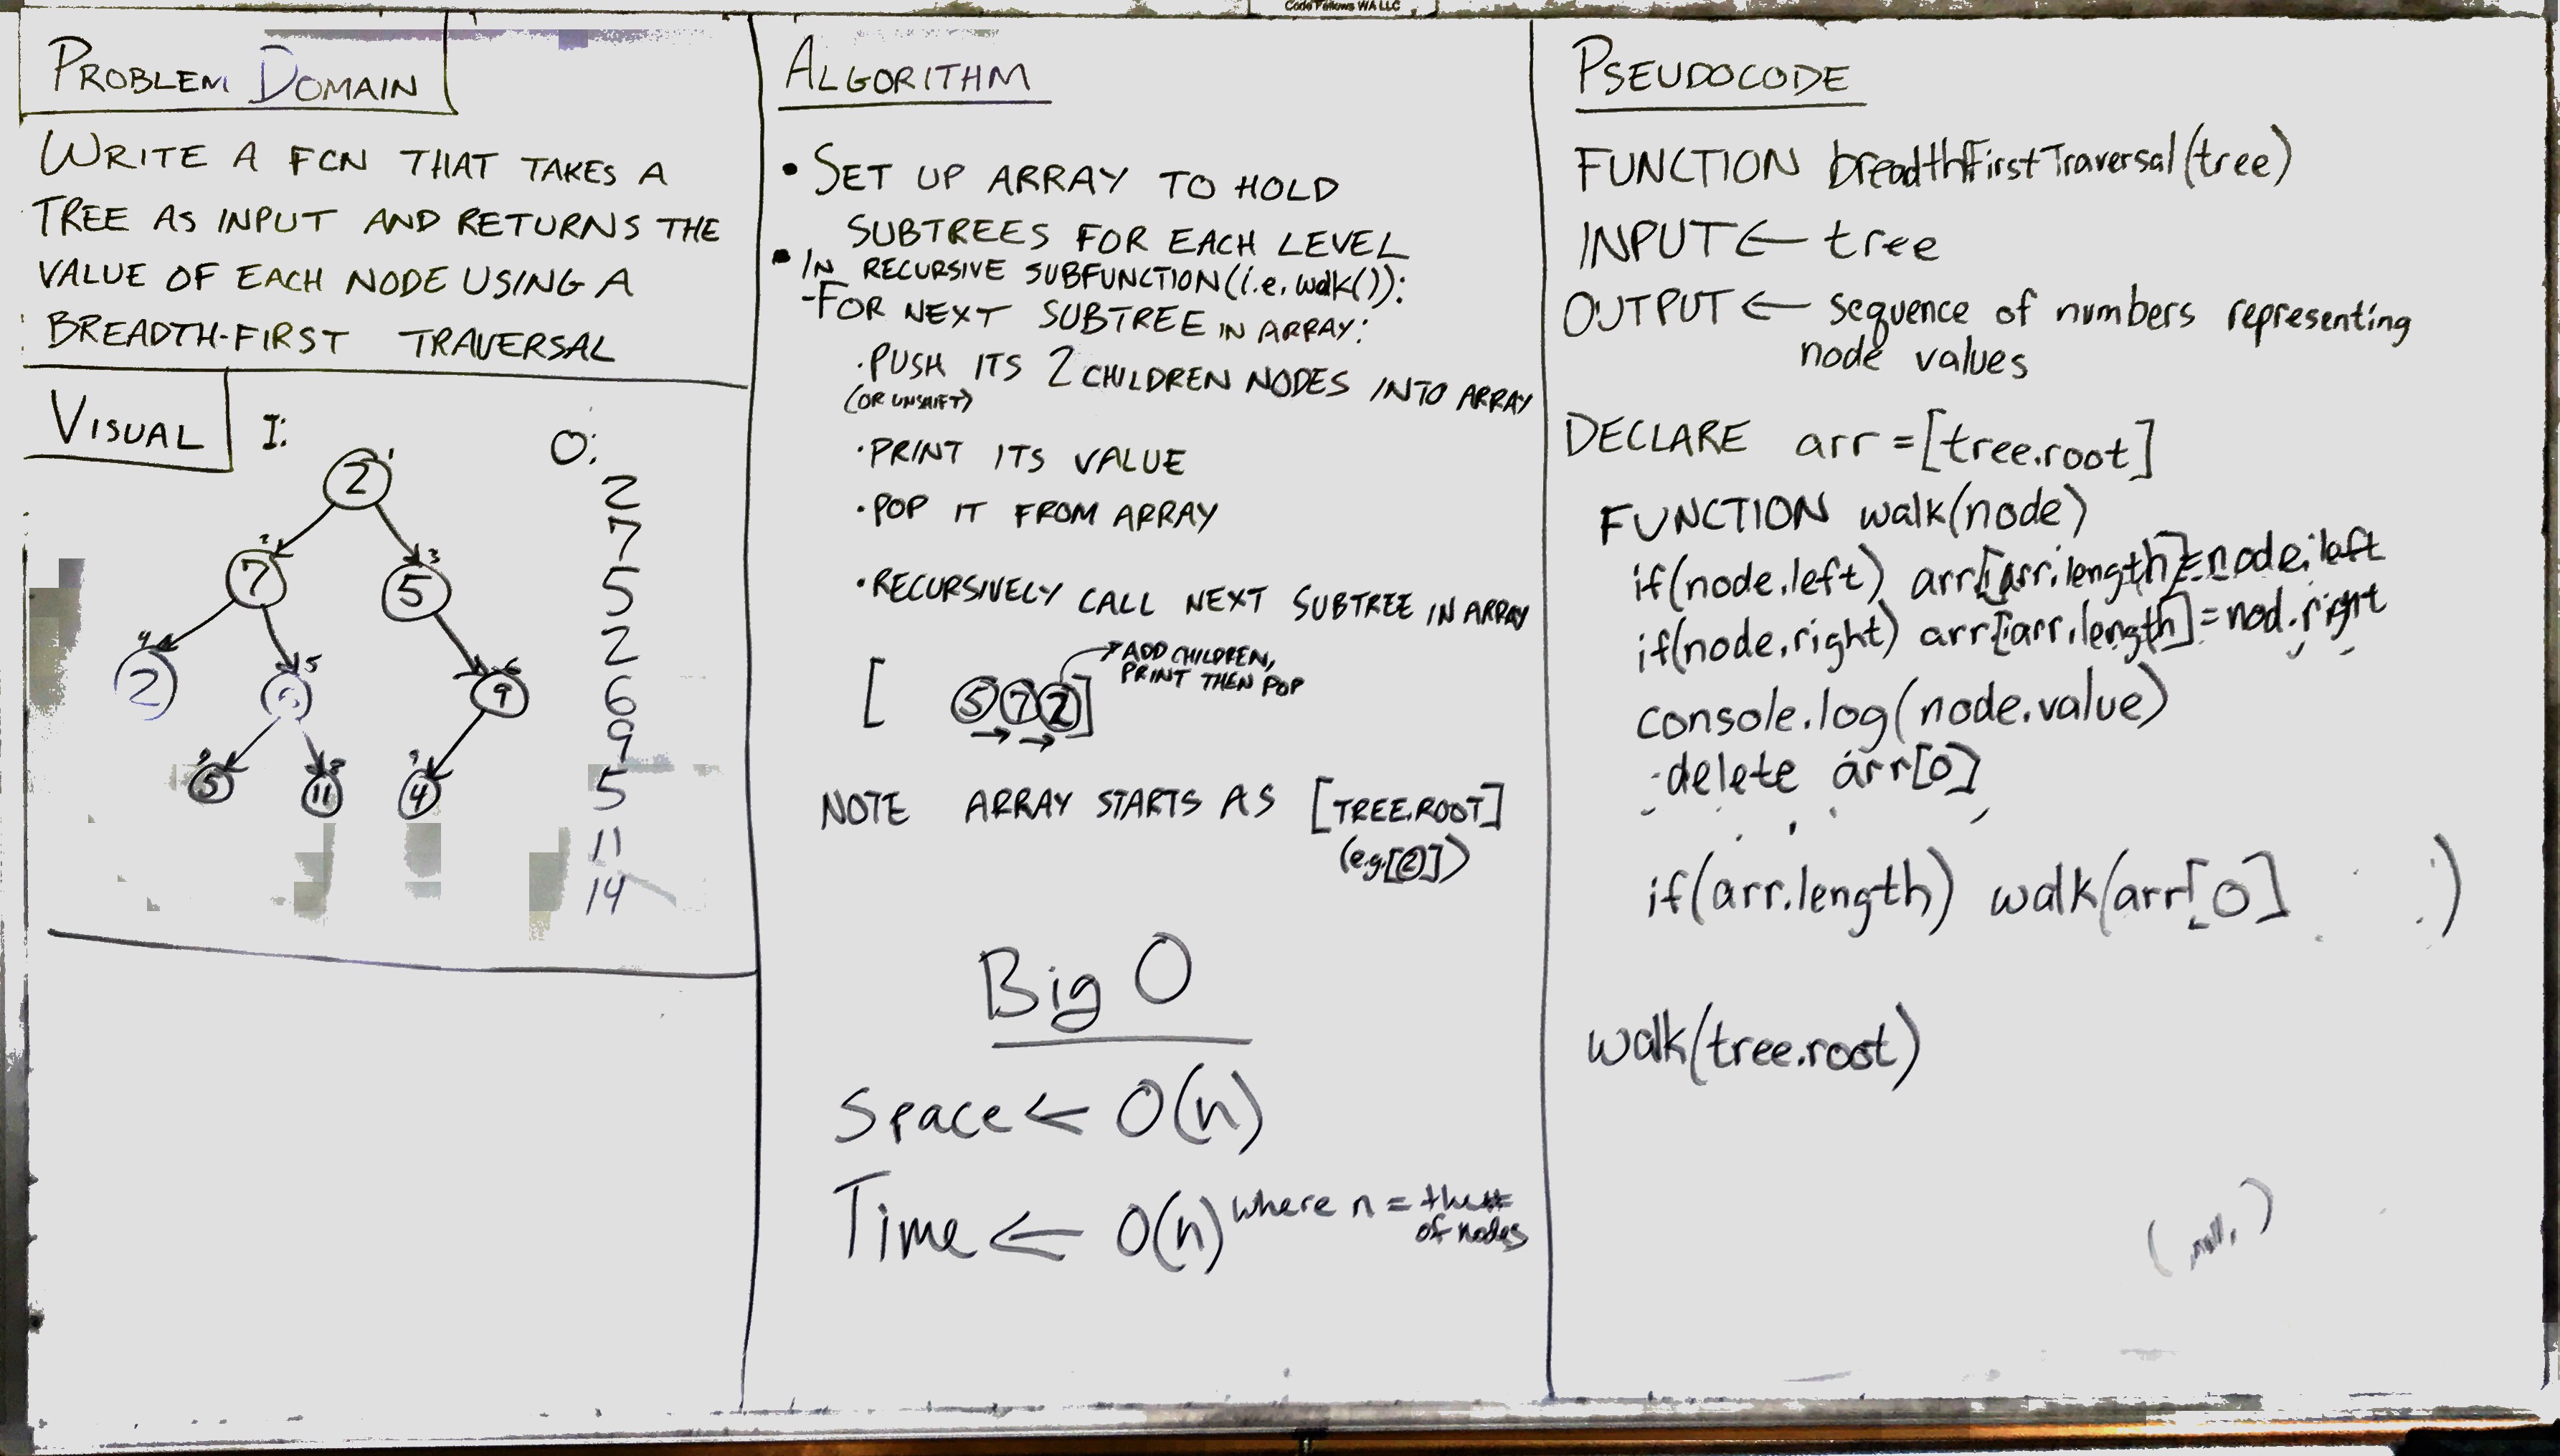 Code Fellows WA LLC
PROBLEM DOMAIN
WRITE A FCN THAT TAKES A
TREE AS INPUT AND RETURNS THE
VALUE OF EACH NODE USING A
BREADTH-FIRST TRAVERSAL
VISUAL
I:
O:
2 1
7 2
5 3
2 4
5
9 6
5
11 8
4 9
2
7
5
2
6
9
5
11
14
ALGORITHM
• SET UP ARRAY TO HOLD
SUBTREES FOR EACH LEVEL
• IN RECURSIVE SUBFUNCTION (i.e. walk()):
-FOR NEXT SUBTREE IN ARRAY:
· PUSH ITS 2 CHILDREN NODES INTO ARRAY
(OR UNSHIFT)
· PRINT ITS VALUE
· POP IT FROM ARRAY
· RECURSIVELY CALL NEXT SUBTREE IN ARRAY
ADD CHILDREN,
PRINT THEN POP
[ 5 7 2 ]
NOTE ARRAY STARTS AS [TREE.ROOT]
(e.g. [2])
Big O
Space ← O(n)
Time ← O(n) where n = the #
of nodes
PSEUDOCODE
FUNCTION breadthFirstTraversal(tree)
INPUT ← tree
OUTPUT ← sequence of numbers representing
node values
DECLARE arr = [tree.root]
FUNCTION walk(node)
if(node.left) arr[arr.length] = node.left
if(node.right) arr[arr.length] = nod.right
console.log(node.value)
delete arr[0]
if(arr.length) walk(arr[0] )
walk(tree.root)
(null, )